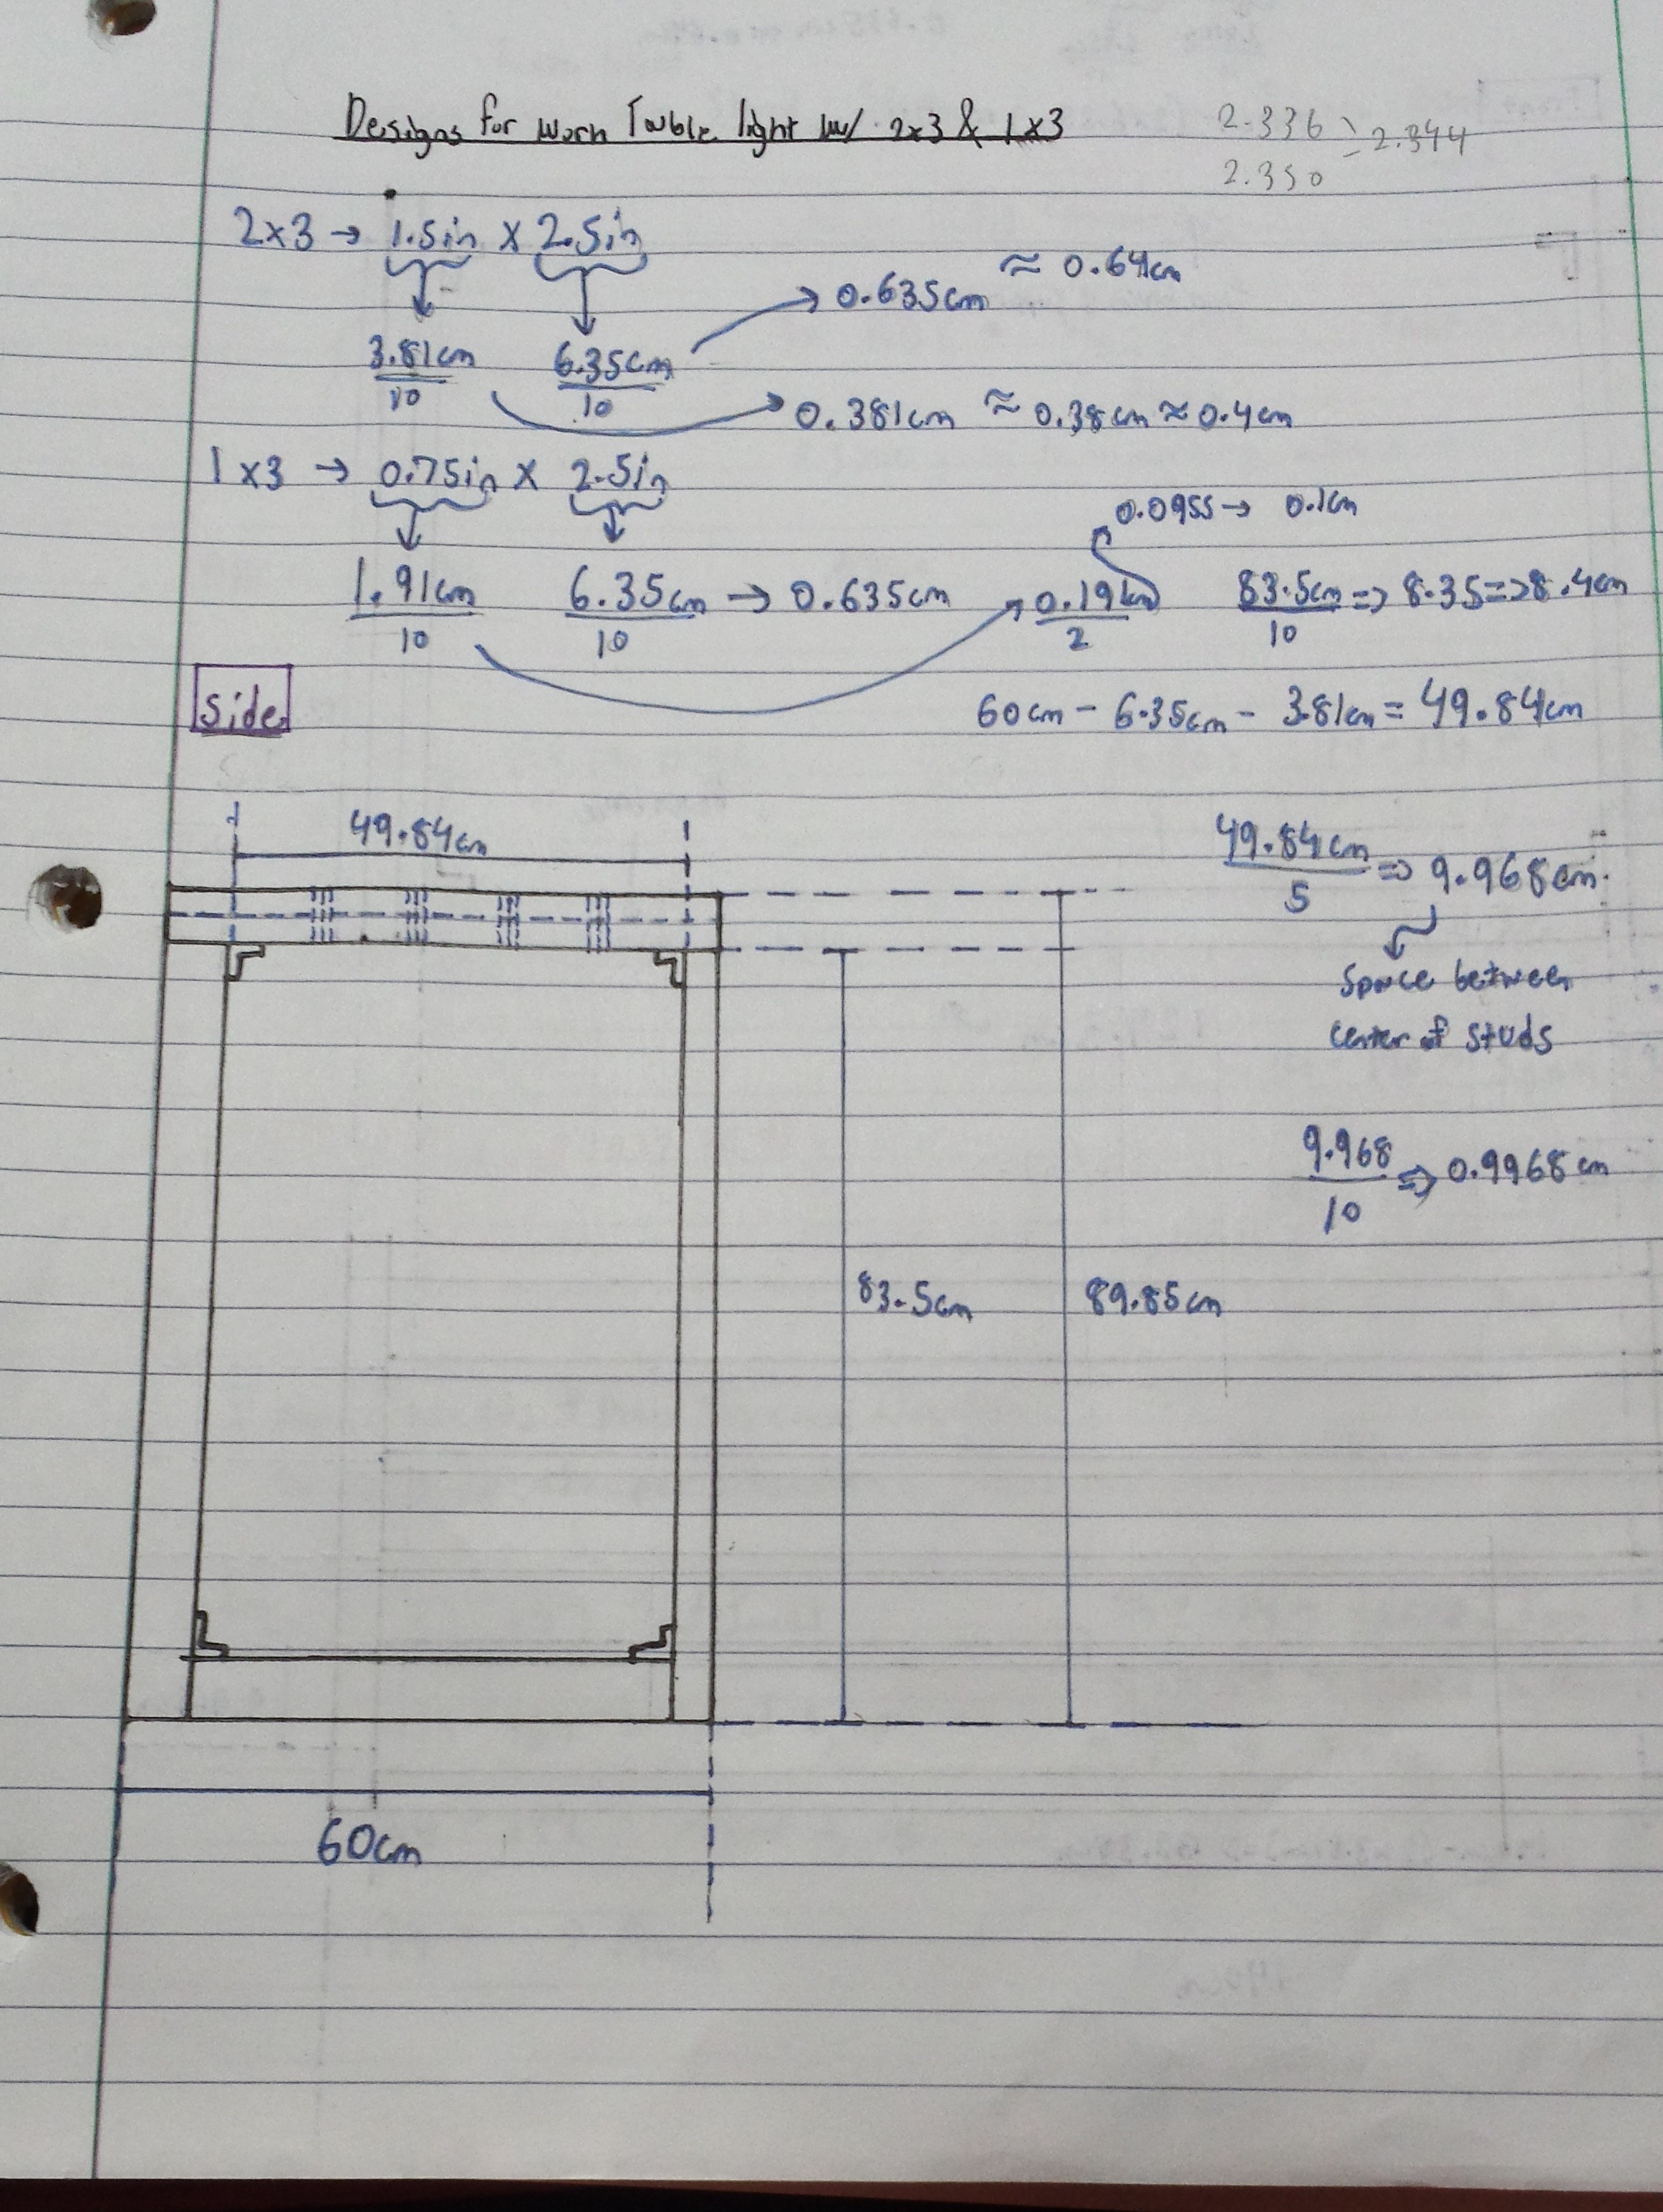 Designs for Work Table light w/ 2x3 & 1x3
2.336
2.350
2.344
2x3 → 1.5in x 2.5in
3.81cm
10
6.35cm
10
→ 0.635cm ≈ 0.64cm
→ 0.381cm ≈ 0.38cm ≈ 0.4cm
1x3 → 0.75in x 2.5in
1.91cm
10
6.35cm → 0.635cm
10
0.191cm
2
0.0955 → 0.1cm
83.5cm => 8.35 => 8.4cm
10
Side
60cm - 6.35cm - 3.81cm = 49.84cm
49.84cm
49.84cm => 9.968cm
5
Space between
center of studs
9.968 => 0.9968cm
10
83.5cm
89.85cm
60cm